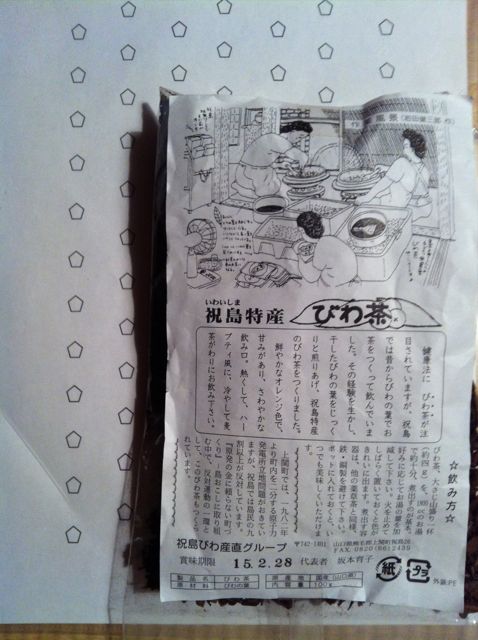 作業風景(岩田健三郎・作)
いわいしま
祝島特産
びわ茶
健康法に びわ茶が注
目されていますが、祝島
では昔からびわの葉でお
茶をつくって飲んでいま
した。その経験を生かし、
干したびわの葉をじっく
りと煎りあげ、祝島特産
のびわ茶をつくりました。
鮮やかなオレンジ色で、
甘みがあり、さわやかな
飲み口。熱くして、ハー
ブティ風に、冷やして麦
茶がわりにお飲み下さい。
☆飲み方☆
びわ茶、大さじ山盛り一杯
(約四g)を、1800ccのお湯
で約十分、煮出すのが基本。
お好みに応じてお湯の量を加
減して下さい。火を止めて
しばらく置いておくと色が
きれいに出ます。煮出す容
器は、他の薬草茶と同様、
鉄・銅製を避けて下さい。
ポットに入れておくと、い
つでも美味しくいただけます
上関町では、一九八二年
より町内を二分する原子力
発電所立地問題がおきてい
ますが、祝島では島民の九
割以上が反対しています。
『原発の金に頼らない町づ
くり』、島おこしに取り組
む中で、反対運動の一環と
して、このびわ茶もつくら
れています。
祝島びわ産直グループ
〒742-1401
山口県熊毛郡上関町祝島
FAX. 0820(66)2439
賞味期限 15.2.28 代表者 坂本育子
製品名 びわ茶 原産地 国産(山口県)
原材料 びわの葉 内容量 100g
紙
プラ
外装:PE